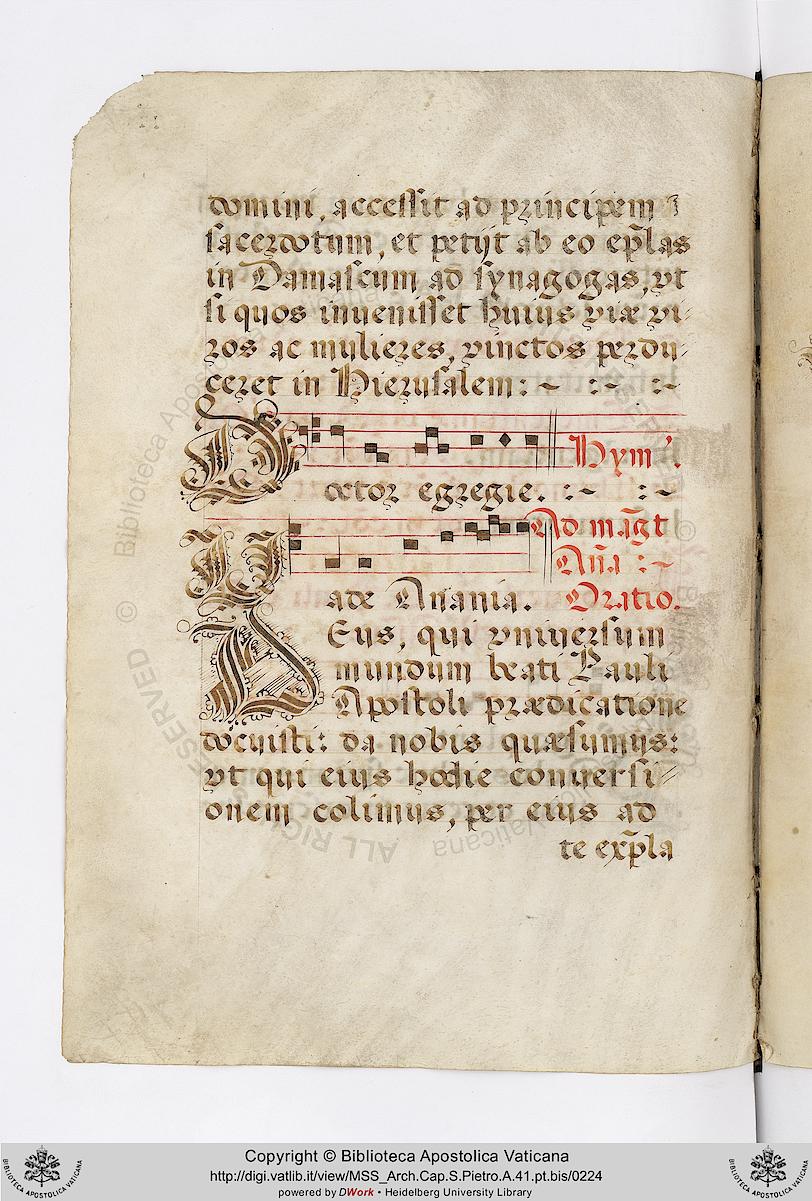 domini, accessit ad principem
sacerdotum, et petijt ab eo ep̃las
in Damascum ad synagogas, vt
si quos inuenisset huius viæ vi-
ros ac mulieres, vinctos perdu-
ceret in Hierusalem: ~ : ~ : ~
Hym.
Doctor egregie. : ~ : ~
Ad mag̃t
Añã : ~
Vade Anania. Oratio.
DEus, qui vniuersum
mundum beati Pauli
Apostoli prædicatione
docuisti: da nobis quæsumus:
vt qui eius hodie conuersi-
onem colimus, per eius ad
te exp̃la
BIBLIOTECA APOSTOLICA VATICANA
Copyright © Biblioteca Apostolica Vaticana
http://digi.vatlib.it/view/MSS_Arch.Cap.S.Pietro.A.41.pt.bis/0224
powered by DWork • Heidelberg University Library
BIBLIOTECA APOSTOLICA VATICANA